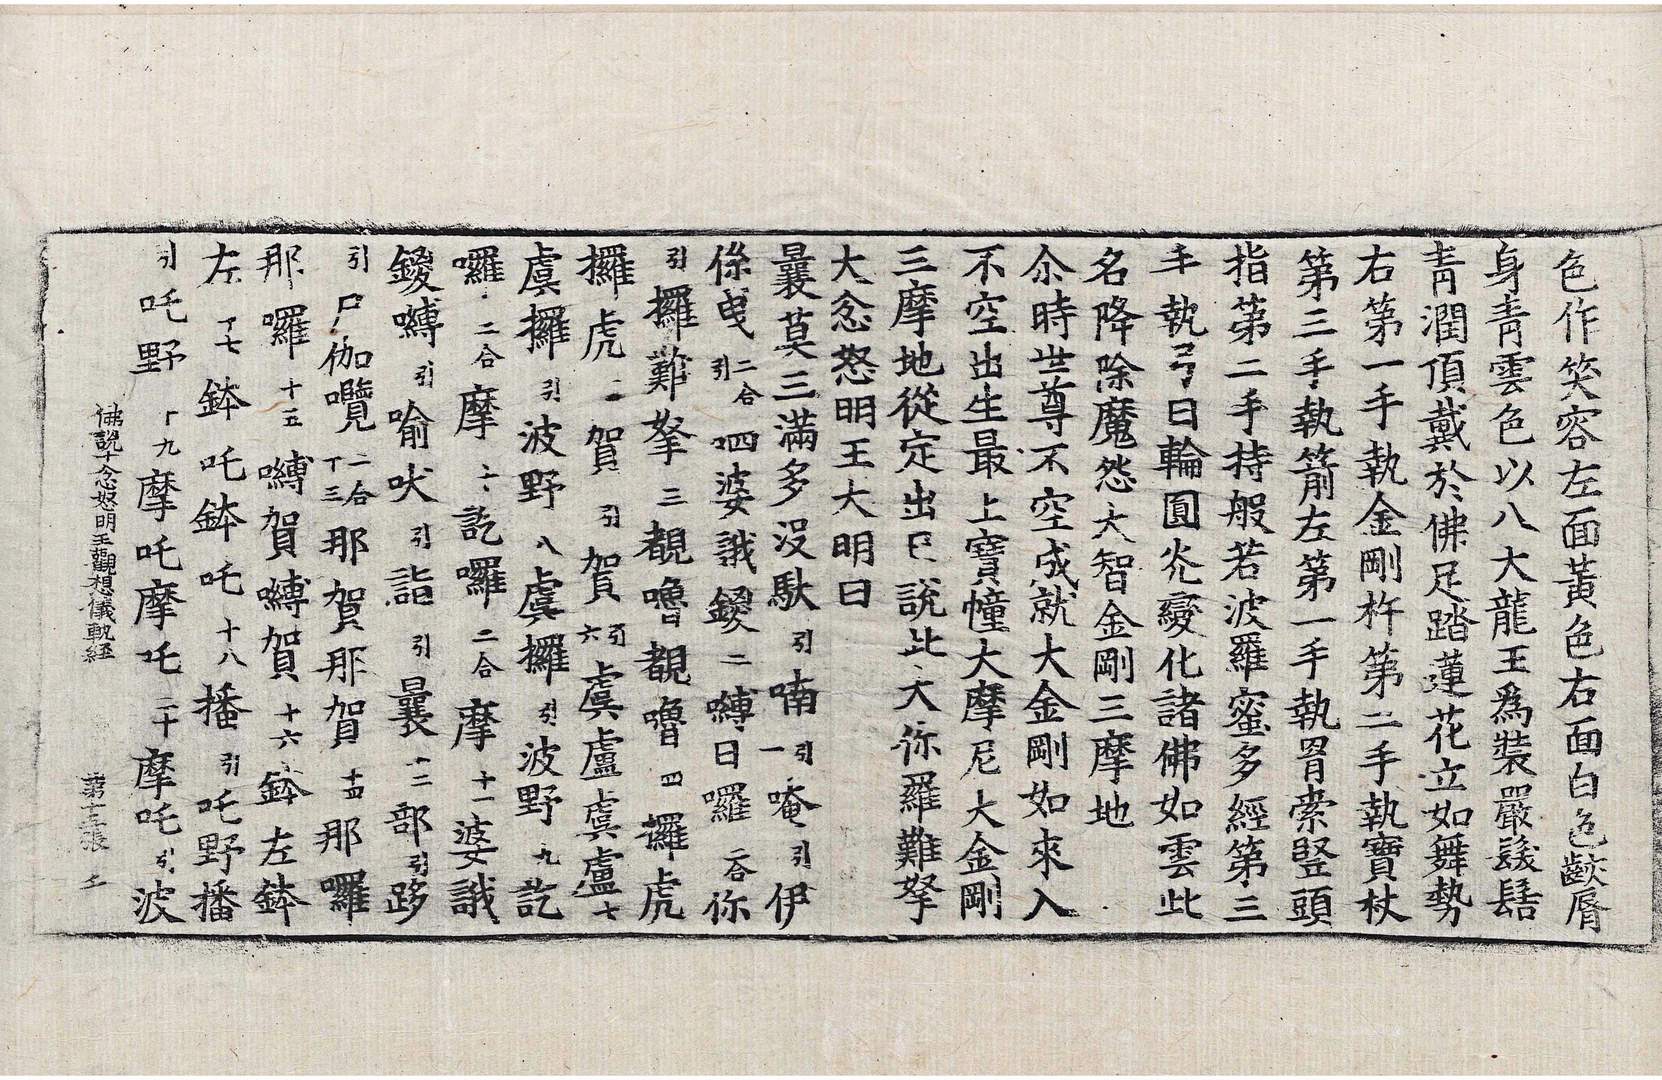 色作笑容左面黃色右面白色齩脣
身青雲色以八大龍王爲裝嚴髮髻
青潤頂戴於佛足踏蓮花立如舞勢
右第一手執金剛杵第二手執寶杖
第三手執箭左第一手執罥索竪頭
指第二手持般若波羅蜜多經第三
手執弓日輪圓光變化諸佛如雲此
名降除魔怨大智金剛三摩地
尒時世尊不空成就大金剛如來入
不空出生最上寶幢大摩尼大金剛
三摩地從定出已說此大你羅難拏
大忿怒明王大明曰
曩莫三滿多沒馱引喃引一唵引伊
係曳二合引呬婆誐鑁二嚩日囉二合你
引攞難拏三覩嚕覩嚕四攞虎
攞虎五賀引賀引六虞盧虞盧七
虞攞引波野八虞攞引波野九訖
囉二合摩十訖囉二合摩十一婆誐
鑁嚩引喻吠引詣引曩十二部引跢
引尸伽嚂二合十三那賀那賀十四那囉
那囉十五嚩賀嚩賀十六鉢左鉢
左十七鉢吒鉢吒十八播引吒野播
引吒野十九摩吒摩吒二十摩吒引波
佛說十忿怒明王觀想儀軌經 第十三張